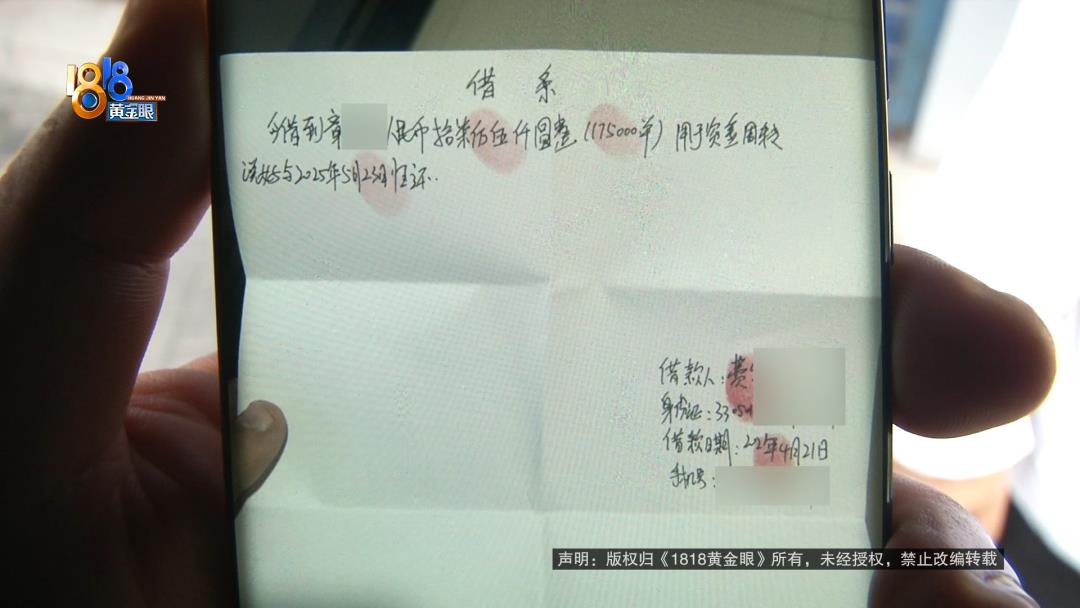 1818
HUANG JIN YAN
黄金眼
借 条
今借到章 人民币拾柒万伍仟圆整（175000元）用于资金周转
2025年5月23日归还.
借款人：费
身份证：3305
借款日期：22年4月21日
手机号：
声明：版权归《1818黄金眼》所有，未经授权，禁止改编转载